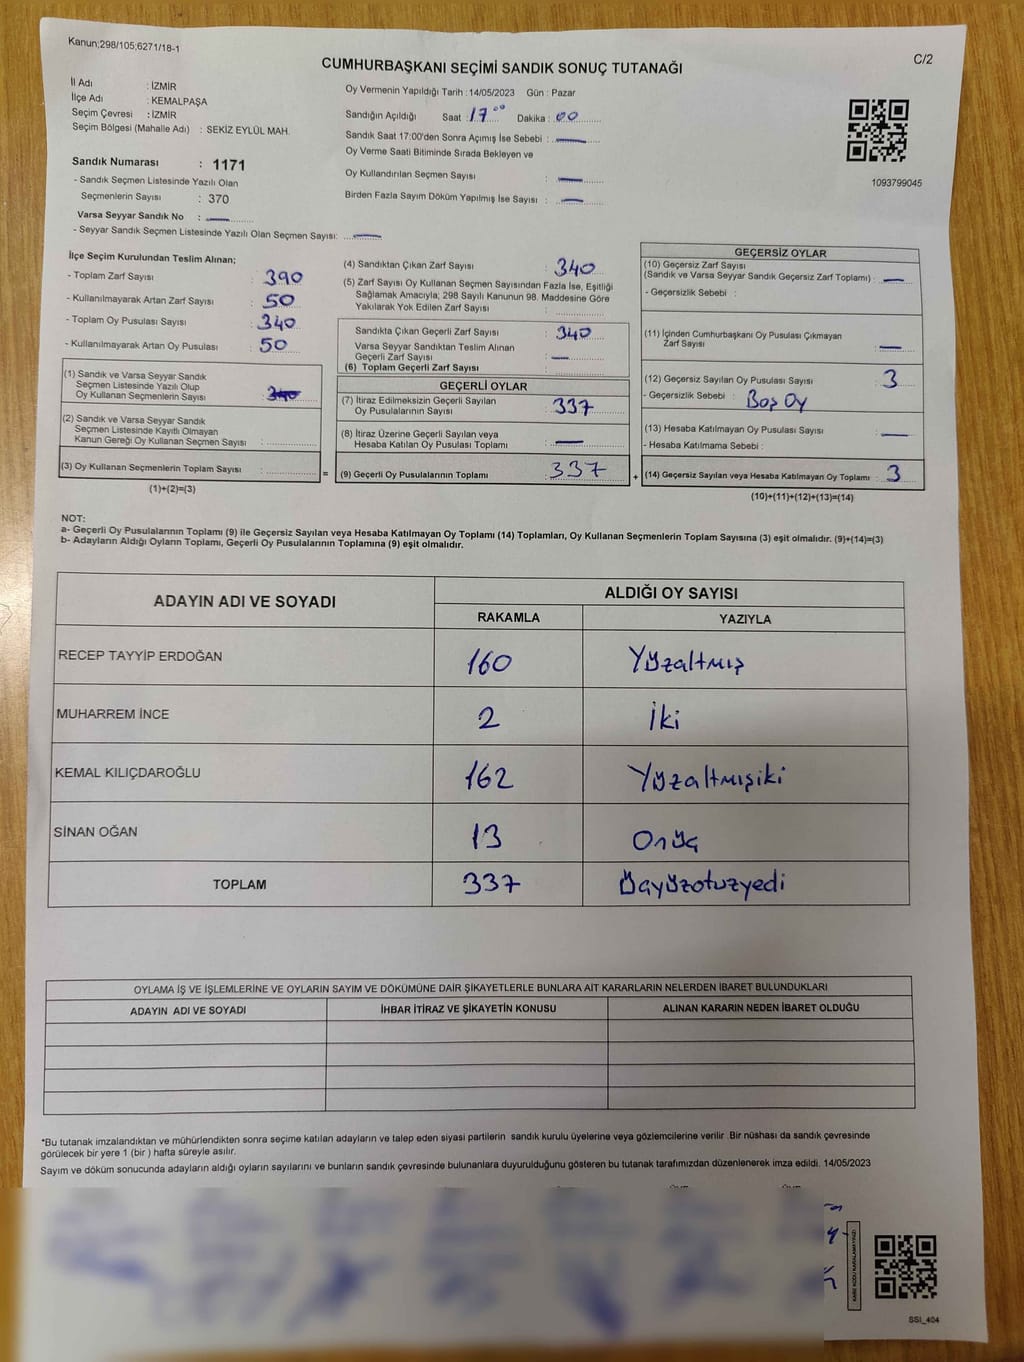 Kanun;298/105;6271/18-1
C/2
CUMHURBAŞKANI SEÇİMİ SANDIK SONUÇ TUTANAĞI
İl Adı : İZMİR
İlçe Adı : KEMALPAŞA
Seçim Çevresi : İZMİR
Seçim Bölgesi (Mahalle Adı) : SEKİZ EYLÜL MAH.
Sandık Numarası : 1171
- Sandık Seçmen Listesinde Yazılı Olan
Seçmenlerin Sayısı : 370
Varsa Seyyar Sandık No : —
- Seyyar Sandık Seçmen Listesinde Yazılı Olan Seçmen Sayısı: —
Oy Vermenin Yapıldığı Tarih :14/05/2023 Gün : Pazar
Sandığın Açıldığı Saat : 17⁰⁰ Dakika : 00
Sandık Saat 17:00'den Sonra Açımış İse Sebebi : —
Oy Verme Saati Bitiminde Sırada Bekleyen ve
Oy Kullandırılan Seçmen Sayısı : —
Birden Fazla Sayım Döküm Yapılmış İse Sayısı : —
1093799045
İlçe Seçim Kurulundan Teslim Alınan;
- Toplam Zarf Sayısı : 390
- Kullanılmayarak Artan Zarf Sayısı : 50
- Toplam Oy Pusulası Sayısı : 340
- Kullanılmayarak Artan Oy Pusulası : 50
(1) Sandık ve Varsa Seyyar Sandık
Seçmen Listesinde Yazılı Olup
Oy Kullanan Seçmenlerin Sayısı : 340
(2) Sandık ve Varsa Seyyar Sandık
Seçmen Listesinde Kayıtlı Olmayan
Kanun Gereği Oy Kullanan Seçmen Sayısı :
(3) Oy Kullanan Seçmenlerin Toplam Sayısı :
(1)+(2)=(3)
(4) Sandıktan Çıkan Zarf Sayısı : 340
(5) Zarf Sayısı Oy Kullanan Seçmen Sayısından Fazla İse, Eşitliği
Sağlamak Amacıyla; 298 Sayılı Kanunun 98. Maddesine Göre
Yakılarak Yok Edilen Zarf Sayısı :
Sandıkta Çıkan Geçerli Zarf Sayısı : 340
Varsa Seyyar Sandıktan Teslim Alınan
Geçerli Zarf Sayısı : —
(6) Toplam Geçerli Zarf Sayısı :
GEÇERLİ OYLAR
(7) İtiraz Edilmeksizin Geçerli Sayılan
Oy Pusulalarının Sayısı : 337
(8) İtiraz Üzerine Geçerli Sayılan veya
Hesaba Katılan Oy Pusulası Toplamı : —
= (9) Geçerli Oy Pusulalarının Toplamı : 337
GEÇERSİZ OYLAR
(10) Geçersiz Zarf Sayısı
(Sandık ve Varsa Seyyar Sandık Geçersiz Zarf Toplamı) : —
- Geçersizlik Sebebi :
(11) İçinden Cumhurbaşkanı Oy Pusulası Çıkmayan
Zarf Sayısı : —
(12) Geçersiz Sayılan Oy Pusulası Sayısı : 3
- Geçersizlik Sebebi : Boş Oy
(13) Hesaba Katılmayan Oy Pusulası Sayısı : —
- Hesaba Katılmama Sebebi :
+ (14) Geçersiz Sayılan veya Hesaba Katılmayan Oy Toplamı : 3
(10)+(11)+(12)+(13)=(14)
NOT:
a- Geçerli Oy Pusulalarının Toplamı (9) ile Geçersiz Sayılan veya Hesaba Katılmayan Oy Toplamı (14) Toplamları, Oy Kullanan Seçmenlerin Toplam Sayısına (3) eşit olmalıdır. (9)+(14)=(3)
b- Adayların Aldığı Oyların Toplamı, Geçerli Oy Pusulalarının Toplamına (9) eşit olmalıdır.
ADAYIN ADI VE SOYADI ALDIĞI OY SAYISI
RAKAMLA YAZIYLA
RECEP TAYYİP ERDOĞAN 160 Yüzaltmış
MUHARREM İNCE 2 İki
KEMAL KILIÇDAROĞLU 162 Yüzaltmışiki
SİNAN OĞAN 13 Onüç
TOPLAM 337 Üçyüzotuzyedi
OYLAMA İŞ VE İŞLEMLERİNE VE OYLARIN SAYIM VE DÖKÜMÜNE DAİR ŞİKAYETLERLE BUNLARA AİT KARARLARIN NELERDEN İBARET BULUNDUKLARI
ADAYIN ADI VE SOYADI İHBAR İTİRAZ VE ŞİKAYETİN KONUSU ALINAN KARARIN NEDEN İBARET OLDUĞU
*Bu tutanak imzalandıktan ve mühürlendikten sonra seçime katılan adayların ve talep eden siyasi partilerin sandık kurulu üyelerine veya gözlemcilerine verilir. Bir nüshası da sandık çevresinde
görülecek bir yere 1 (bir ) hafta süreyle asılır.
Sayım ve döküm sonucunda adayların aldığı oyların sayılarını ve bunların sandık çevresinde bulunanlara duyurulduğunu gösteren bu tutanak tarafımızdan düzenlenerek imza edildi. 14/05/2023
KARE KODU KARALAMAYINIZ!
SSI_404